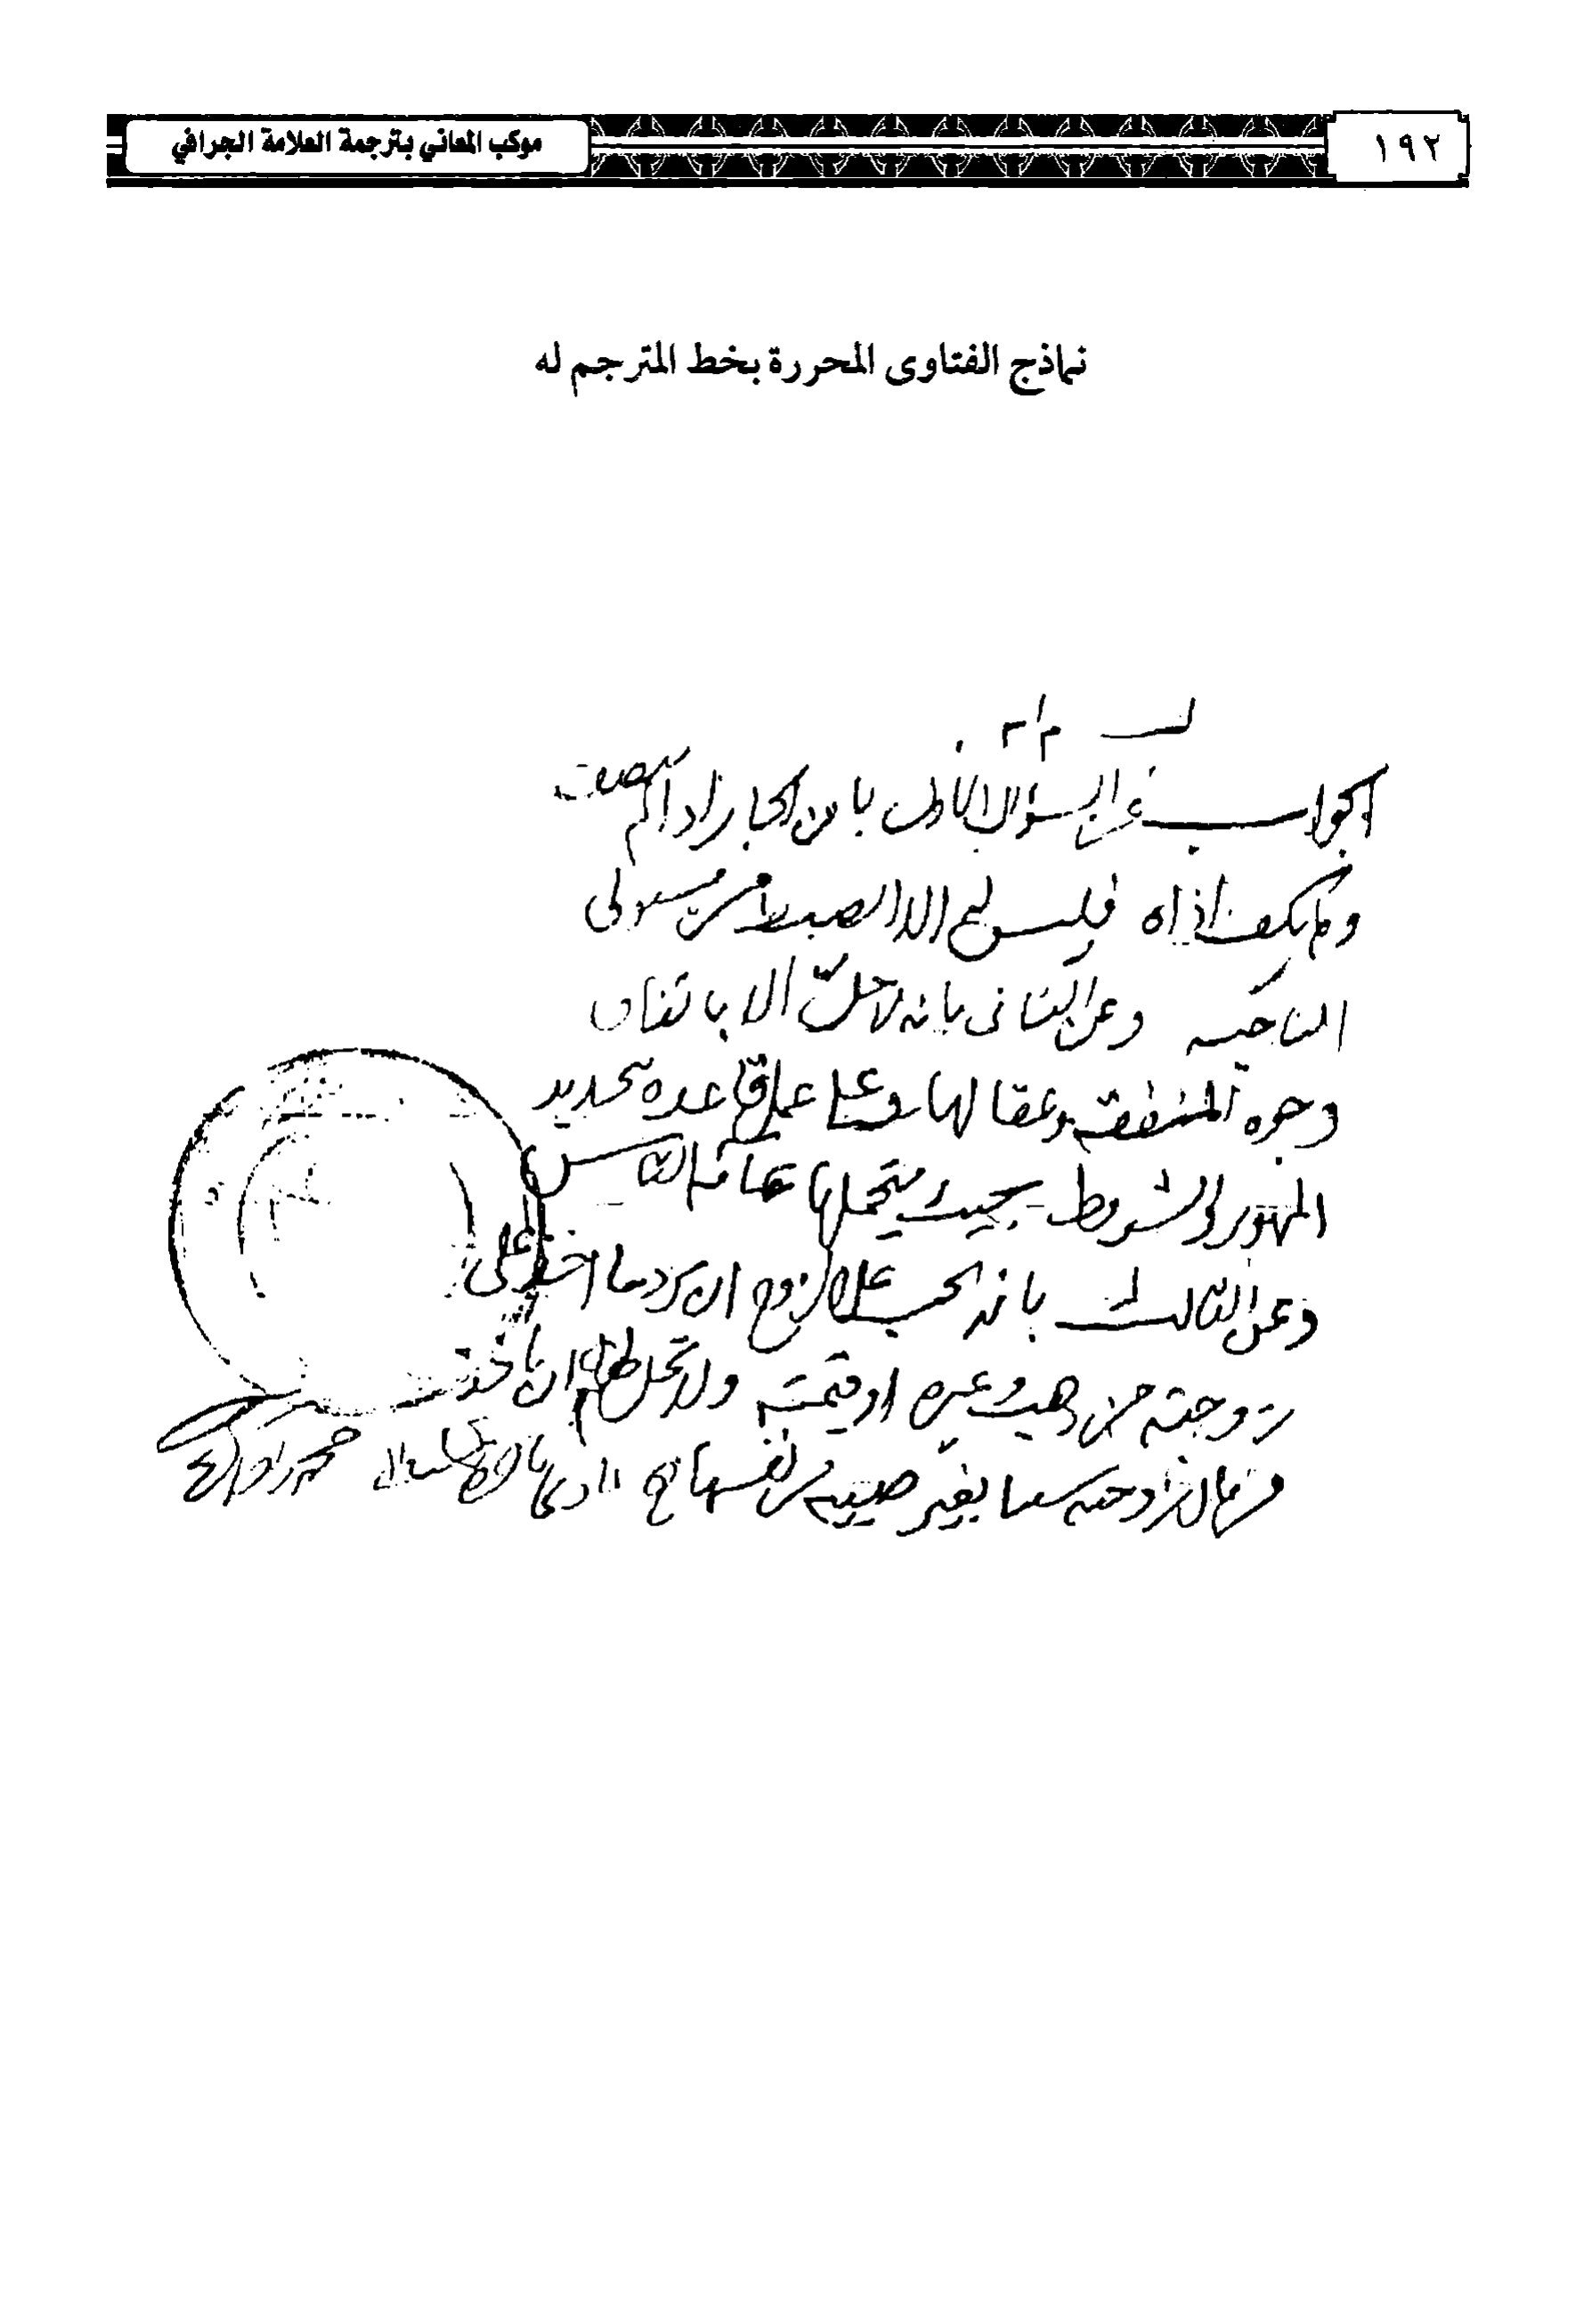 موكب المعاني بترجمة العلامة الجرافي
١٩٢
نماذج الفتاوى المحررة بخط المترجم له
الجواب عن السؤال الاول بان الجار اذا لم
ولم يكف اذاه فليس له الا الضبط من مسئولي
الناحيه وعن الثاني بانه لا حل الا باتفاق
وجوه المنطقه وعقالها وعلى قاعده تحديد
المهور والشروط بحيث يتحملها عامة الناس
وعن الثالث بانه يجب على الزوج ان يرد ما اخذ على
زوجته من ذهب وغيره او قيمته ولا يحل له ان ياخذ
من مال زوجته شيئا بغير طيبه من نفسها